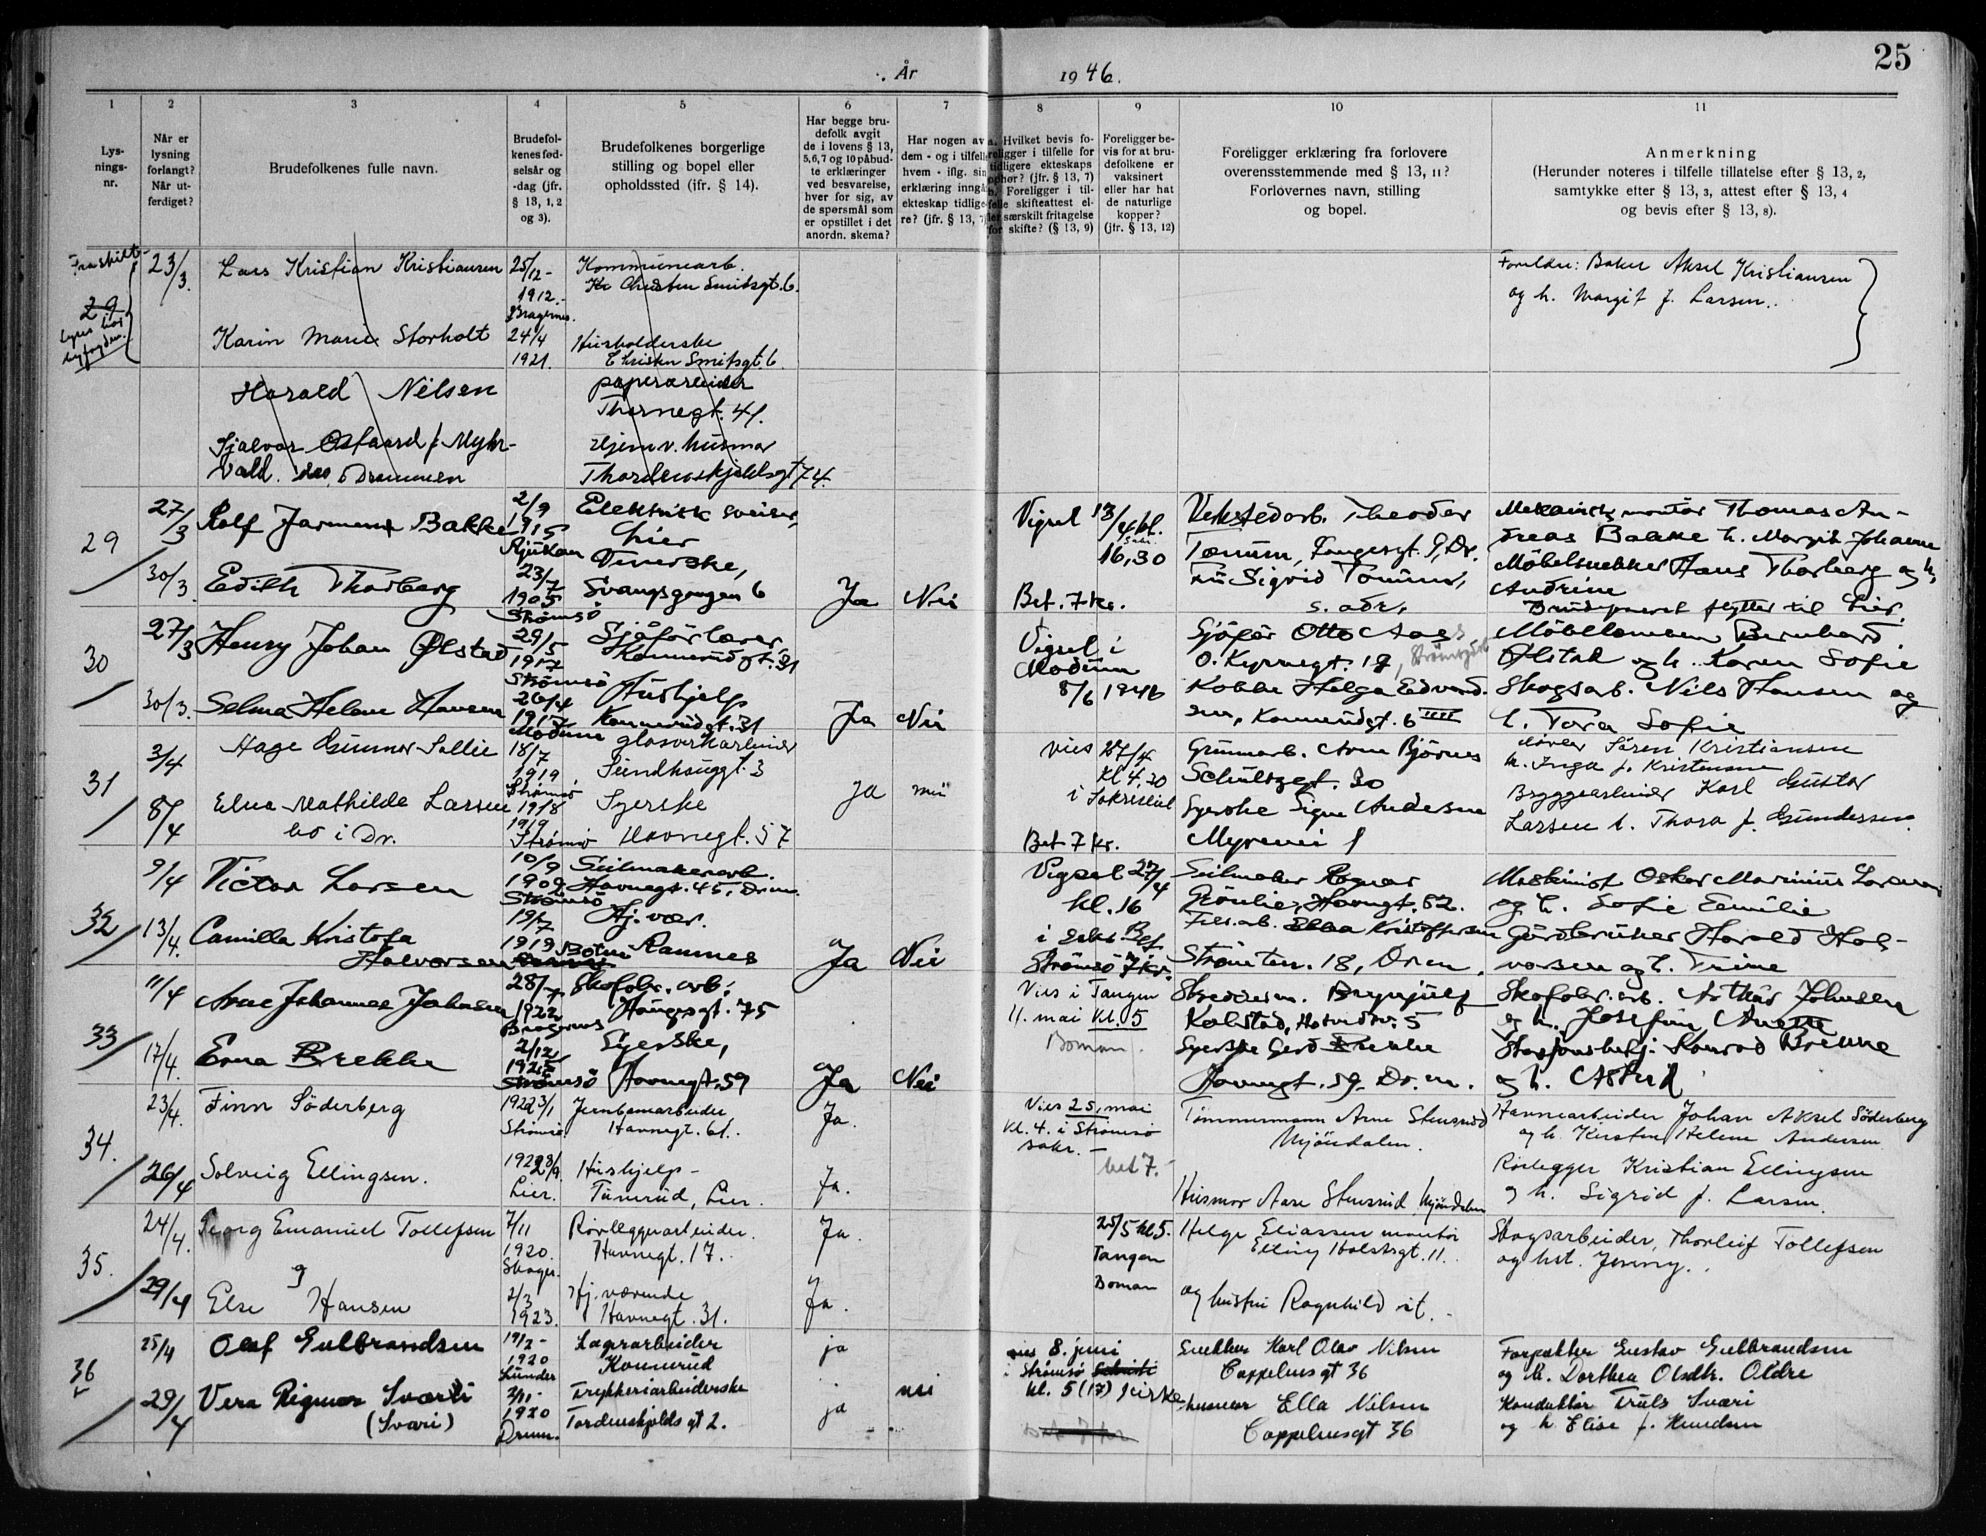 25
År 1946.
1 2 3 4 5 6 7 8 9 10 11
Lys-
nings-
nr.
Når er
lysning
forlangt?
Når ut-
ferdiget?
Brudefolkenes fulle navn.
Brudefol-
kenes fød-
selsår og
-dag (jfr.
§ 13, 1, 2
og 3).
Brudefolkenes borgerlige
stilling og bopel eller
opholdssted (ifr. § 14).
Har begge bru-
defolk avgit
de i lovens § 13,
5,6,7 og 10 påbud-
te erklæringer
ved besvarelse,
hver for sig, av
de spørsmål som
er opstillet i det
anordn. skema?
Har nogen av
dem - og i tilfelle
hvem - iflg. sin
erklæring inngå
ekteskap tidlige-
re? (jfr. § 13, 7)
a. Hvilket bevis fo-
religger i tilfelle for
tidligere ekteskaps
ophør? (jfr. § 13, 7)
b. Foreligger i til-
felle skifteattest el-
ler særskilt fritagelse
for skifte? (§ 13, 9)
Foreligger be-
vis for at bru-
defolkene er
vaksinert
eller har hat
de naturlige
kopper?
(jfr. § 13, 12)
Foreligger erklæring fra forlovere
overensstemmende med § 13, 11?
Forlovernes navn, stilling
og bopel.
Anmerkning
(Herunder noteres i tilfelle tillatelse efter § 13, 2,
samtykke efter § 13, 3, attest efter § 13, 4
og bevis efter § 13, 8).
29
23/3.
Lars Kristian Kristiansen
25/12-
1912.-
Bragernes.
Kommunearb.
Christen Smitsgt. 6.
Foreldre: Baker Aksel Kristiansen
og h. Margit f. Larsen.
Karin Marie Storholt
24/4
1921.
Husholderske
Christen Smitsgt. 6
Harald Nilsen
Thornegt. 41.
Myhr-
vold. Drammen
Hjemv. husmor
Thordenskjoldsgt 74.
29
27/3
Rolf Bakke
2/9
1915
Rjukan
Elektrisk sveiser,
Lier
Vigsel 13/4 kl.
16,30
Verkstedarb. Theodor
Tonum, Tangegt. 9, Dr.
Mekanisk montør Thomas An-
dreas Bakke h. Margit Johanne
30/3.
Edith Thorberg
23/7
1905
Strømsö
Svangsgangen 6
Ja
Nei
Bet. 7 kr.
Fru Sigrid Tonum,
s. adr.
Möbelsnekker Hans Thorberg og h.
Andrine
Brudeparet flytter til Lier.
30
27/3
Henry Johan Ølstad
29/5
1917
Strømsö
Sjåförlærer
Konnerudgt. 31
Vigsel i
Modum
8/6 1946
Sjåfør Otto Aas
O. Kyrresgt. 18,
Bernhard
Ølstad og h. Karen Sofie
30/3.
Selma Helene Hansen
26/4
1917
Modum
Hushjelp
Konnerudgt. 31
Ja
Nei
Helga Edvard-
sen, Konnerudgt. 6
Skogsarb. Nils Hansen og
h. Tora Sofie
31
3/4
Hage Gunnar Sollie
18/7
1919
Strømsö
glassverkarbeider
Sundhauggt. 3
vies 27/4
kl 4.30
i Sakristiet
Grunnarb. Arne Björnes
Schultzgt. 30
Søren Kristiansen
h. Inga f. Kristensen
8/4
Elna Mathilde Larsen
bo i Dr.
19/8
1919
Strømsö
Syerske
Havnegt. 57
Ja
nei
Bet 7 kr.
Syerske Signe Andersen
Myrevei 1
Bryggearbeider Karl Gustav
Larsen h. Thora f. Gundersen.
32
9/4
Victor Larsen
10/9
1909
Strømsö
Seilmakerarb.
Havnegt. 45, Drm.
Vigsel 27/4
kl. 16
Seilmaker Ragnar
Grönlie, Havngt. 52.
Maskinist Oskar Marinius Larsen
og h. Sofie Emilie
13/4.
Camilla Kristofa
Halvorsen
19/7
1919
Hj. vær.
Ramnes
Ja
Nei
i sakr. Bet
Strømsö 7 kr.
Ella Kristoffersen
Strömten. 18, Drm.
Gårdbruker Harald Hal-
vorsen og h. Trine
33
11/4
Arne Johannes Johnsen
28/7
1922
Bragernes
Skofabr. arb.
Haugesgt. 75
Vies i Tangen
4. mai kl. 5
Boman.
Brynjulf
Kolstad, Hotvedtv. 5
Skofabr. arb. Arthur Johnsen
og h. Josefine Anette
17/4.
Erna Brekke
2/12
1925
Strømsö
Syerske,
Havnegt. 59
Ja
Nei
Syerske Gerd Brekke
Havnegt. 59 Drm.
Konrad Brekke
og h. Astrid
34.
23/4.
Finn Söderberg
1922 3/1
Strömsö.
Jernbanearbeider
Havnegt. 61.
Ja.
Vies 25. mai
kl. 4. i Strömsö
sakr. -
bet 7.-
Timmermann Arne Stensrud
Mjöndalen.
Havnearbeider Johan Aksel Söderberg
og h. Kirsten Helene Andersen
26/4
Solveig Ellingsen.
Lier.
Hushjelp -
Tuverud, Lier.
Ja.
Husmor Aase Stensrud, Mjöndalen
Rørlegger Kristian Ellingsen
og h. Sigrid f. Larsen.
35.
24/4.
Georg Emanuel Tollefsen
7/11
1920.
Skoger.
Rørleggerarbeider.
Havnegt. 17.
Ja.
25/5 kl 5.
Tangen
Boman
Helge Eliassen montör
Elling Holstsgt. 11.
Skogsarbeider, Thorleif Tollefsen
og hst. Jenny.
29/4
Else Hansen
2/3
1923.
Hj. værende
Havnegt. 31.
Ja.
og hustru Ragnhild st.
36
25/4
Olaf Gulbrandsen
19/2-
1920
Sunder
Lagerarbeider
Konnerud
ja
vies 8. juni
i Strømsø
kl. 5 (17) kirke
Snekker Karl Olav Nilsen
Cappelensgt 36
Forpakter Gustav Gulbrandsen
og h. Dorthea Olsdtr. Oldre
29/4
Vera Rigmor Sværi
(Sværi)
2/11-
1920
Drmn.
Trykkeriarbeiderske
Tordenskjolds gt 2.
ja
nei
husmor Ella Nilsen
Cappelensgt 36
Konduktør Truls Sværi
og h Elise f. Knudsen